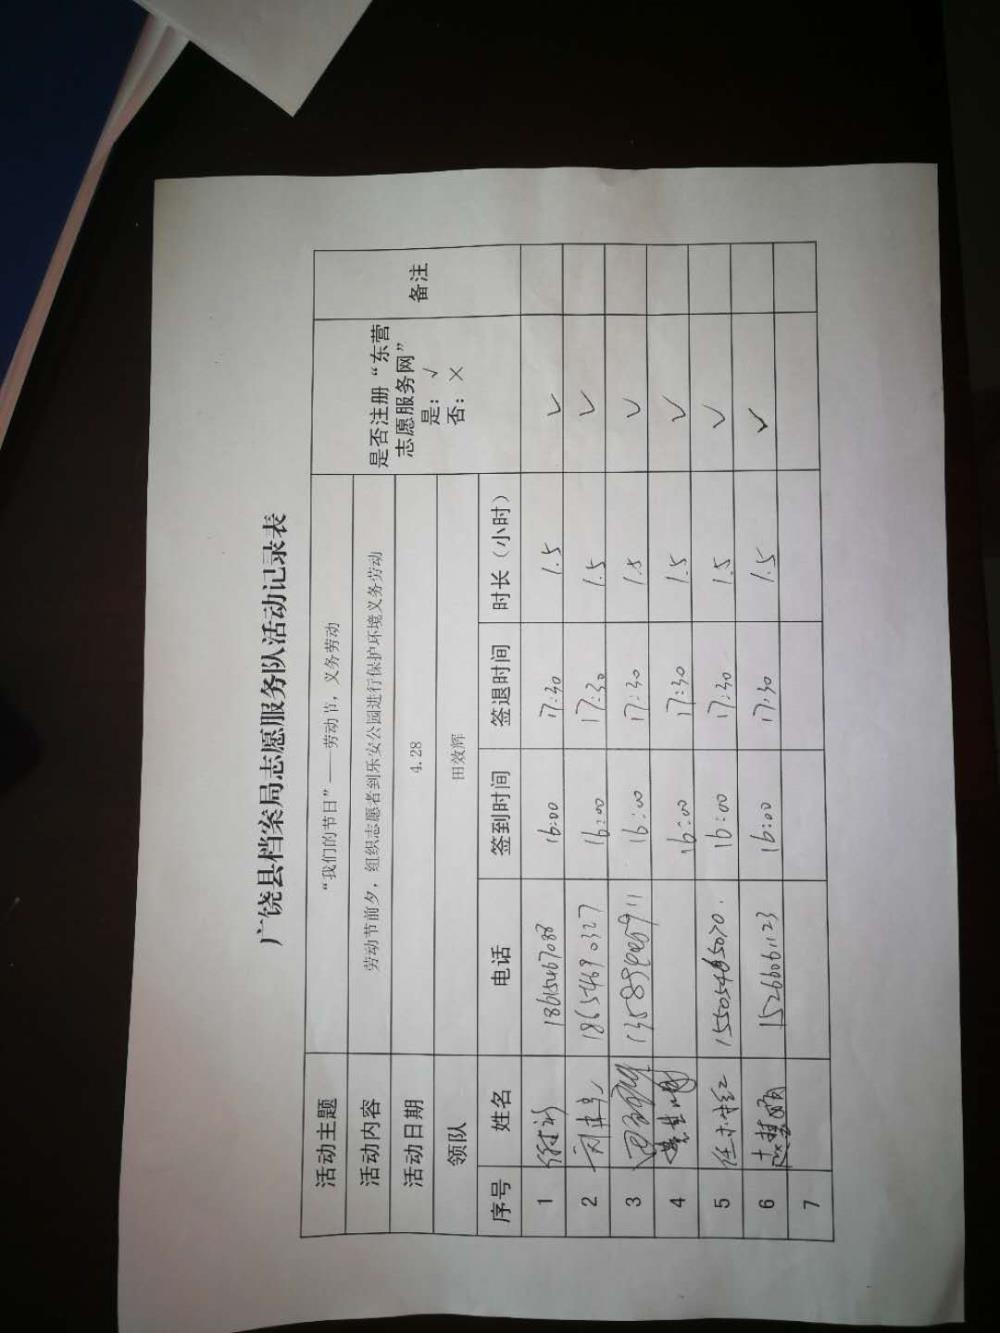 广饶县档案局志愿服务队活动记录表
活动主题 “我们的节日”——劳动节，义务劳动 是否注册“东营志愿服务网” 是：√ 否：× 备注
活动内容 劳动节前夕，组织志愿者到乐安公园进行保护环境义务劳动
活动日期 4.28
领队 田效辉
序号 姓名 电话 签到时间 签退时间 时长（小时）
1 18615467088 16:00 17:30 1.5 √
2 18654690327 16:00 17:30 1.5 √
3 16:00 17:30 1.5 √
4 16:00 17:30 1.5 √
5 16:00 17:30 1.5 √
6 赵梦頔 15266061123 16:00 17:30 1.5 √
7